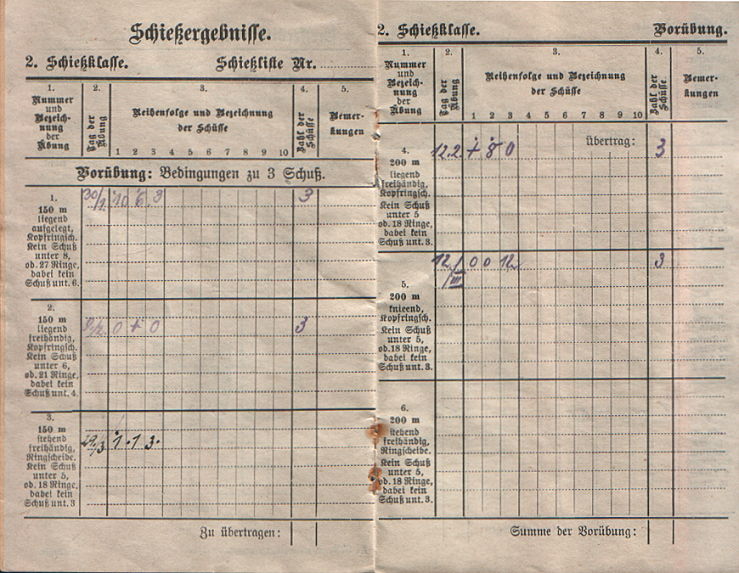 Schießergebnisse.
2. Schießklasse. Schießliste Nr.
1. 2. 3. 4. 5.
Nummer und Bezeichnung der Übung
Tag der Übung
Reihenfolge und Bezeichnung
der Schüsse
1 2 3 4 5 6 7 8 9 10
Zahl der Schüsse
Bemerkungen
Vorübung: Bedingungen zu 3 Schuß.
1.
150 m
liegend
aufgelegt,
Kopfringsch.
Kein Schuß
unter 8,
od. 27 Ringe,
dabei kein
Schuß unt. 6.
30/1. 10 6 3 3
2.
150 m
liegend
freihändig,
Kopfringsch.
Kein Schuß
unter 6,
od. 21 Ringe,
dabei kein
Schuß unt. 4.
0 + 0 3
3.
150 m
stehend
freihändig,
Ringscheibe.
Kein Schuß
unter 5,
od. 18 Ringe,
dabei kein
Schuß unt. 3
1 1 3
Zu übertragen:
2. Schießklasse. Vorübung.
1. 2. 3. 4. 5.
Nummer
und
Bezeich-
nung
der
Übung
Tag der Übung
Reihenfolge und Bezeichnung
der Schüsse
1 2 3 4 5 6 7 8 9 10
Zahl der Schüsse
Bemer-
kungen
übertrag:
4.
200 m
liegend
freihändig,
Kopfringsch.
Kein Schuß
unter 5
od. 18 Ringe,
dabei kein
Schuß unt. 3.
12.2 + 8 0 3
5.
200 m
knieend,
Kopfringsch.
Kein Schuß
unter 5,
od. 18 Ringe,
dabei kein
Schuß unt. 3.
12/III 0 0 12 3
6.
200 m
stehend
freihändig,
Ringscheibe.
Kein Schuß
unter 5,
od. 18 Ringe,
dabei kein
Schuß unt. 3.
Summe der Vorübung: